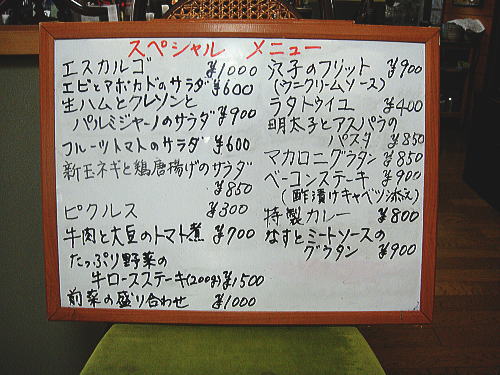 スペシャル メニュー
エスカルゴ ¥1000
エビとアボカドのサラダ ¥600
生ハムとクレソンと
パルミジャーノのサラダ ¥900
フルーツトマトのサラダ ¥600
新玉ネギと鶏唐揚げのサラダ
¥850
ピクルス ¥300
牛肉と大豆のトマト煮 ¥700
たっぷり野菜の
牛ロースステーキ(200g) ¥1500
前菜の盛り合わせ ¥1000
穴子のフリット ¥900
(ウニクリームソース)
ラタトゥイユ ¥400
明太子とアスパラの
パスタ ¥850
マカロニグラタン ¥850
ベーコンステーキ ¥900
(酢漬けキャベツ添え)
特製カレー ¥800
なすとミートソースの
グラタン ¥900